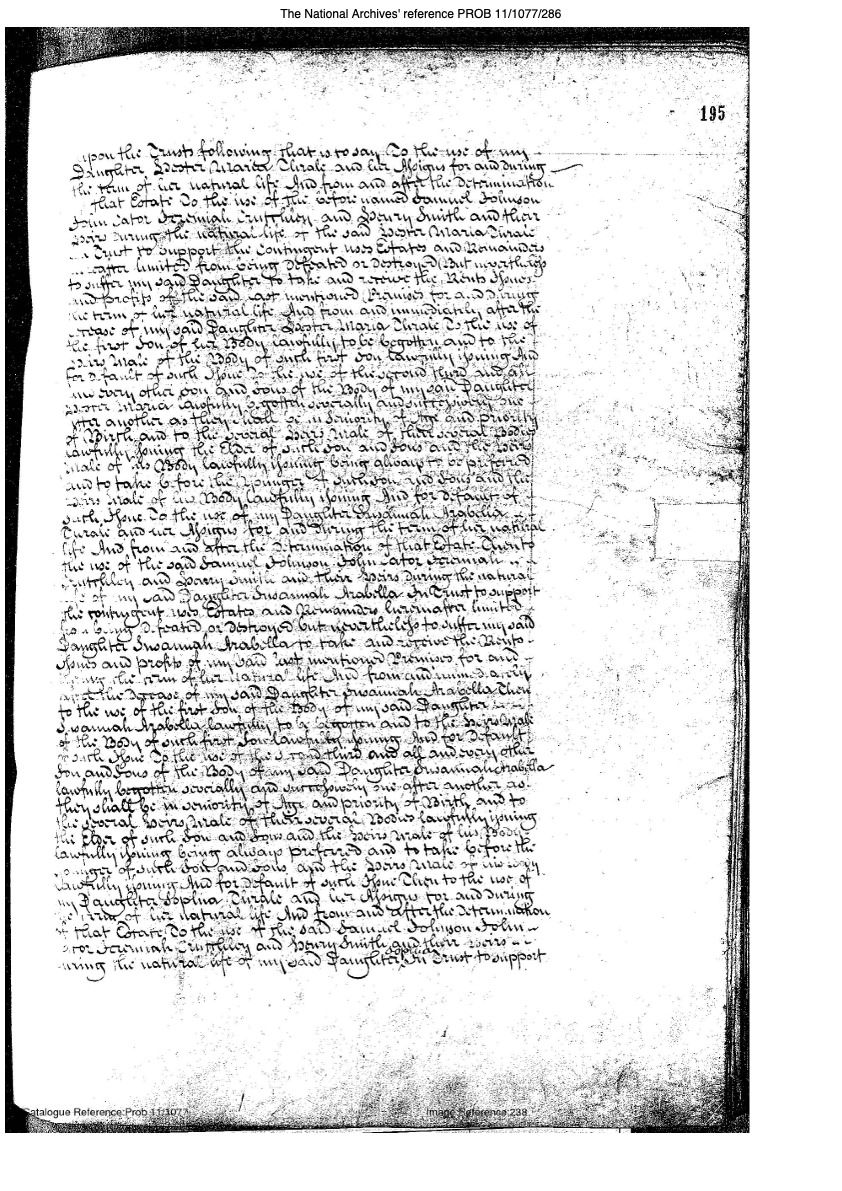 The National Archives' reference PROB 11/1077/286
195
upon the Trusts following that is to say To the use of my
Daughter Hester Maria Thrale and her Assigns for and during
the term of her natural life And from and after the Determination
that Estate To the use of the before named Samuel Johnson
John Cator Jeremiah Crutchley and Henry Smith and their
Heirs During the natural life of the said Hester Maria Thrale
Trust to support the Contingent uses Estates and Remainders
limited from being Defeated or destroyed But nevertheless
to suffer my said Daughter to take and receive the Rents Issues
and profits of the said last mentioned Premises for and during
the term of her natural life And from and immediately after the
cease of my said Daughter Hester Maria Thrale To the use of
the first Son of her Body lawfully to be begotten and to the
Heirs Male of the Body of such first Son lawfully issuing And
for default of such Issue To the use of the second third and all
and every other Son and Sons of the Body of my said Daughter
Hester Maria lawfully begotten severally and successively one
after another as they shall be in Seniority of Age and priority
of Birth and to the several Heirs Male of their several Bodies
lawfully issuing the Elder of such Son and Sons and the Heirs
Male of his Body lawfully issuing being always to be preferred
and to take before the Younger of such Son and Sons and the
Heirs Male of his Body lawfully issuing And for default of
such Issue To the use of my Daughter Susannah Arabella
Thrale and her Assigns for and During the term of her natural
life And from and after the Determination of that Estate Then to
the use of the said Samuel Johnson John Cator Jeremiah
Crutchley and Henry Smith and their Heirs During the natural
of my said Daughter Susannah Arabella In Trust to support
the contingent uses Estates and Remainders hereinafter limited
being Defeated or destroyed but nevertheless to suffer my said
Daughter Susannah Arabella to take and receive the Rents
Issues and profits of my said last mentioned Premises for and
the term of her natural life And from and immediately
after the Decease of my said Daughter Susannah Arabella Then
to the use of the first Son of the Body of my said Daughter
Susannah Arabella lawfully to be begotten and to the Heirs Male
of the Body of such first Son lawfully issuing And for Default
of such Issue To the use of the second third and all and every other
Son and Sons of the Body of my said Daughter Susannah Arabella
lawfully begotten severally and successively one after another as
they shall be in seniority of Age and priority of Birth and to
the several Heirs Male of their several Bodies lawfully issuing
the Elder of such Son and Sons and the Heirs Male of his Body
lawfully issuing being always preferred and to take before the
younger of such Son and Sons and the Heirs Male of his Body
lawfully issuing And for default of such Issue Then to the use of
my Daughter Sophia Thrale and her Assigns for and During
the term of her natural life And from and after the Determination
of that Estate To the use of the said Samuel Johnson John
Cator Jeremiah Crutchley and Henry Smith and their Heirs
during the natural life of my said Daughter Sophia In Trust to support
Catalogue Reference:Prob 11/1077
Image Reference:238